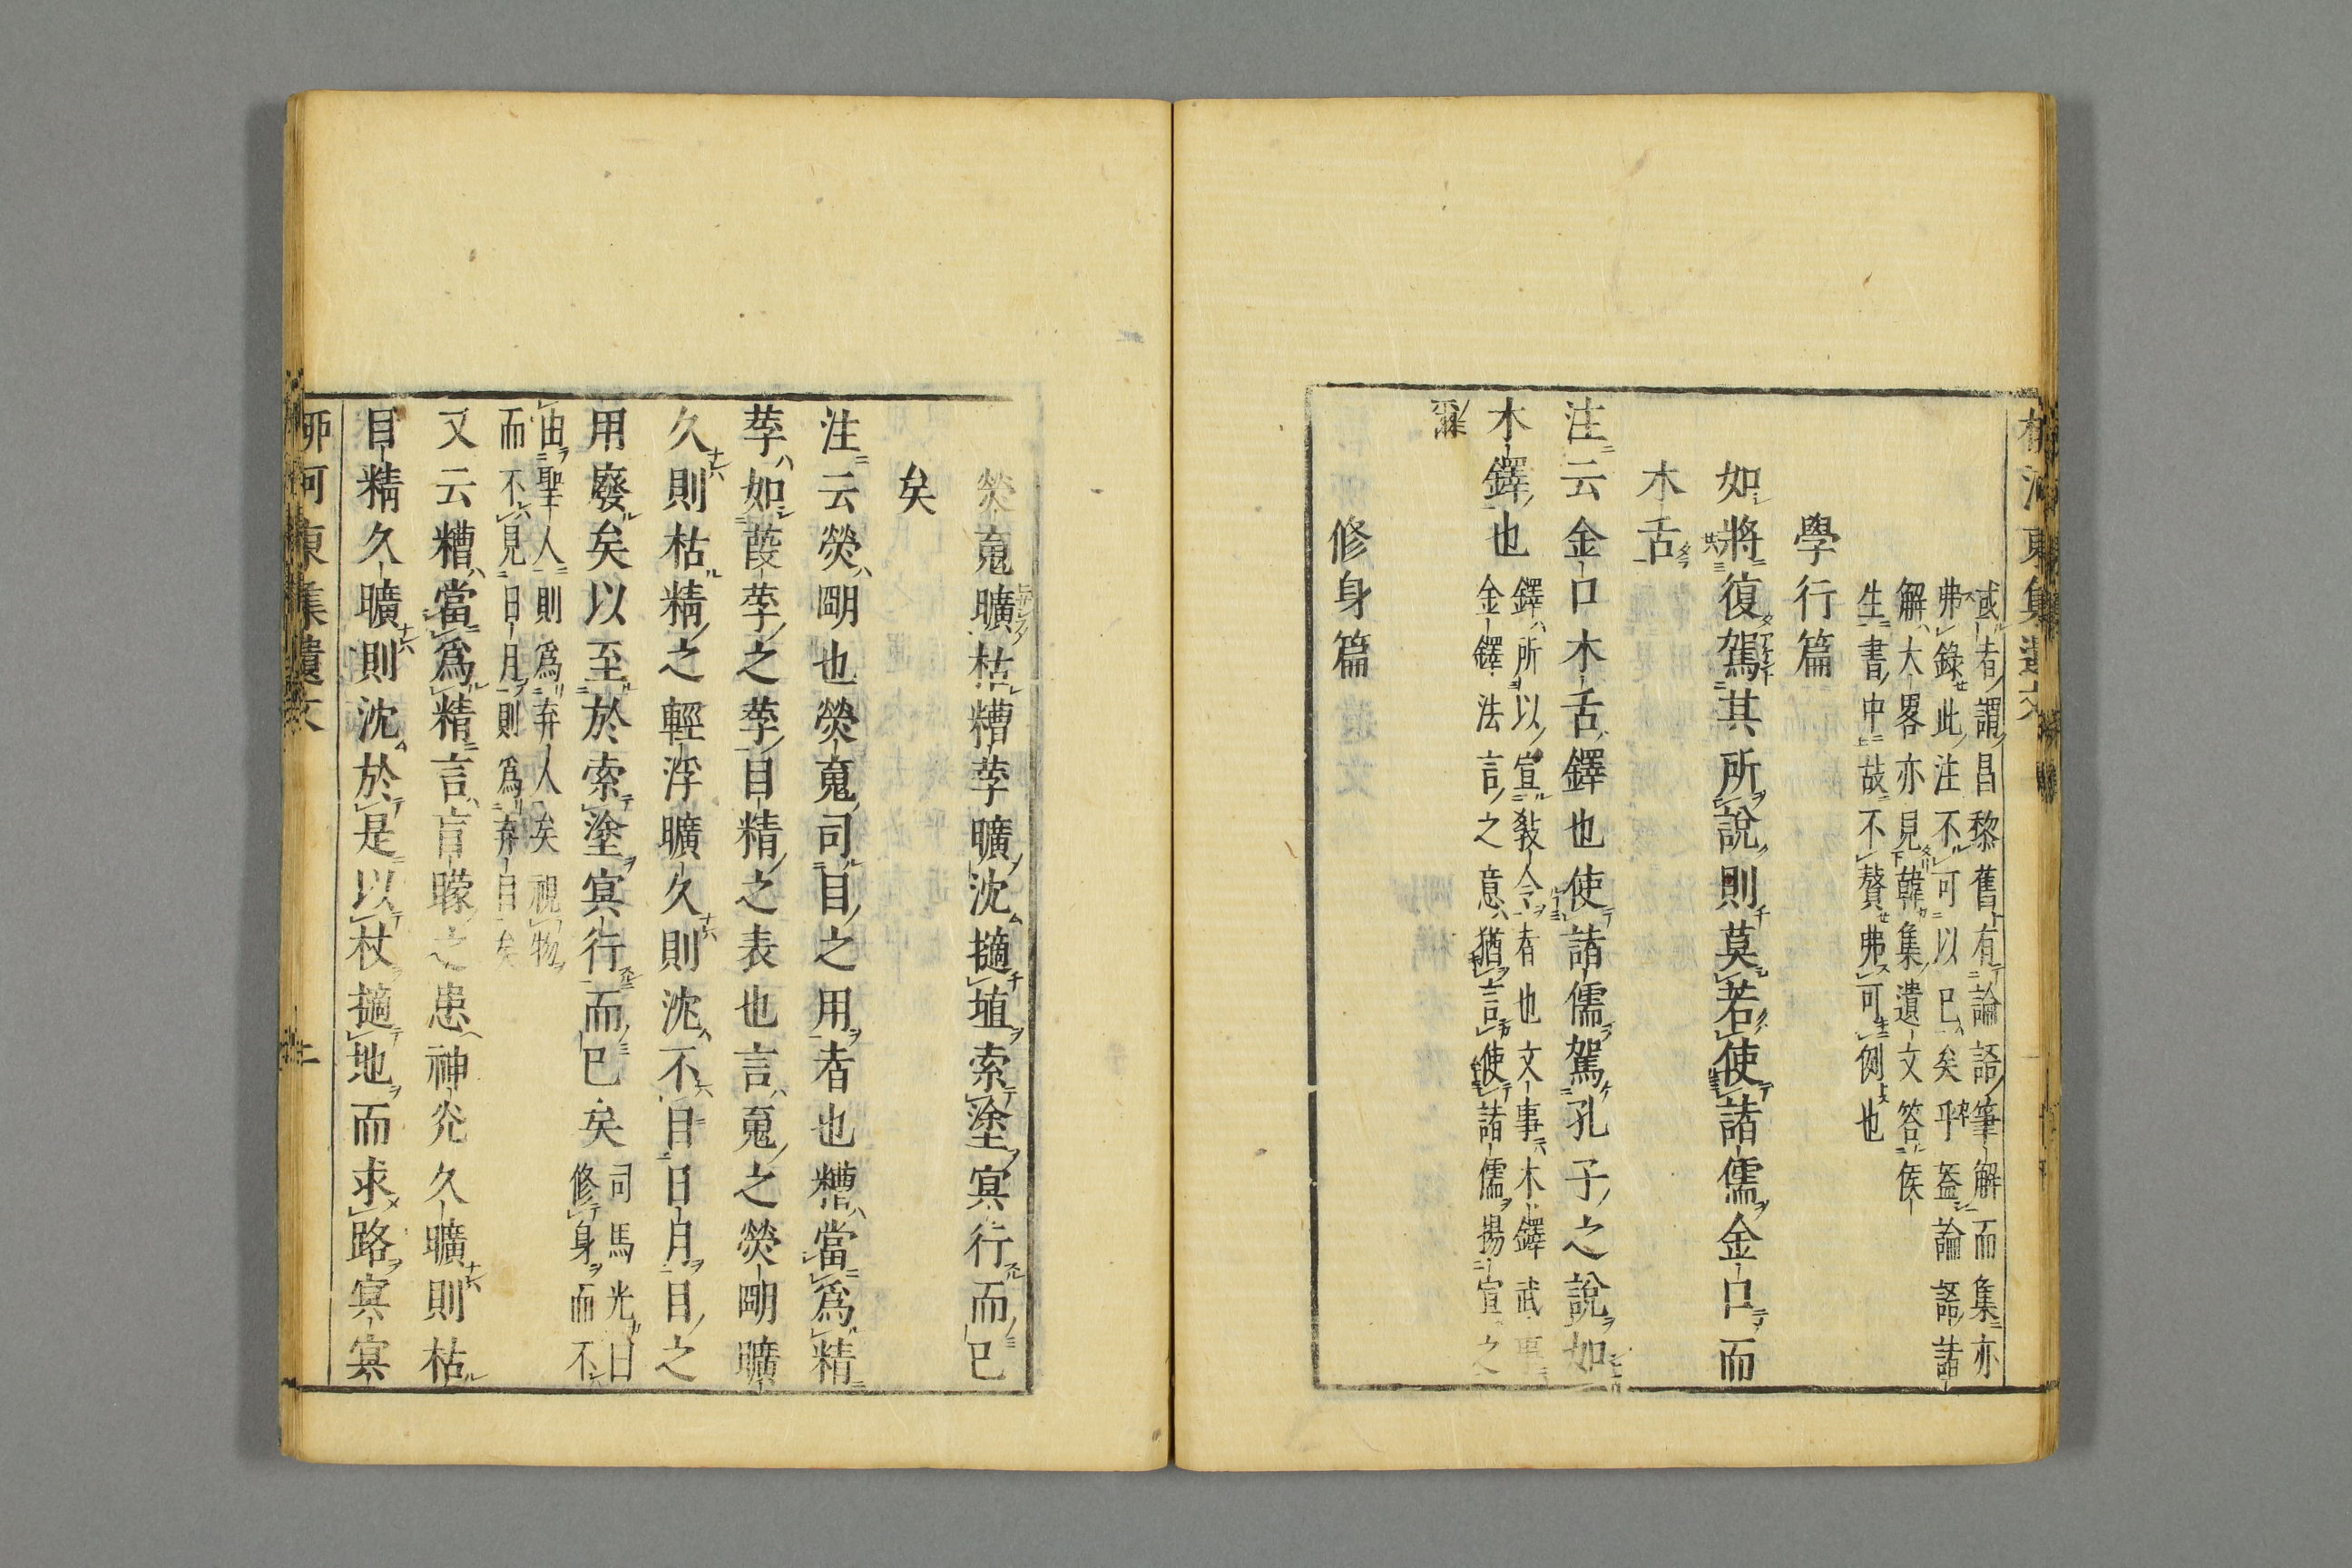 柳河東集遺文
或者謂昌黎舊有論語筆解而集亦
弗錄此注不可以已矣乎蓋論語諸
解大畧亦見韓集遺文答侯
生書中故不贅弗可側也
學行篇
如將復駕其所說則莫若使諸儒金口而
木舌
注云金口木舌鐸也使諸儒駕孔子之說如
木鐸也
鐸所以宣敎令者也文事木鐸武事
金鐸法言之意猶言使諸儒揚宣之
爾
修身篇
熒䰟曠枯糟莩曠沈擿埴索塗冥行而已
矣
注云熒明也熒䰟司目之用者也糟當爲精
莩如葭莩之莩目精之表也言䰟之熒明曠
久則枯精之輕浮曠久則沈不目日月目之
用廢矣以至於索塗冥行而已矣
司馬光曰
修身而不
由聖人則爲弃人矣視物
而不見日月則爲弃目矣
又云糟當爲精言盲矇之患神光久曠則枯
目精久曠則沈於是以杖擿地而求路冥冥
柳河東集遺文